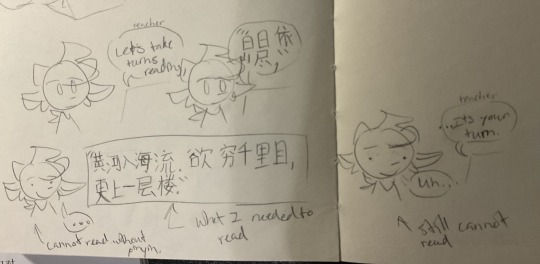 teacher
Let's take
turns
reading,
"白日依
尽,
"黄河入海流. 欲穷千里目,
更上一层楼."
...
cannot read without
pinyin.
What I needed to
read
teacher
...It's your
turn.
Uh...
still cannot
read